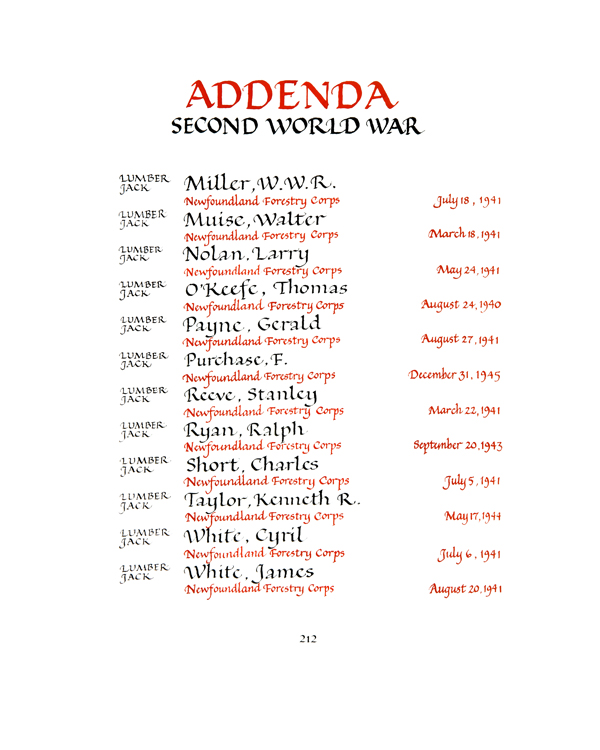 ADDENDA
SECOND WORLD WAR
LUMBER JACK Miller, W.W.R.
Newfoundland Forestry Corps July 18, 1941
LUMBER JACK Muise, Walter
Newfoundland Forestry Corps March 18, 1941
LUMBER JACK Nolan, Larry
Newfoundland Forestry Corps May 24, 1941
LUMBER JACK O'Keefe, Thomas
Newfoundland Forestry Corps August 24, 1940
LUMBER JACK Payne, Gerald
Newfoundland Forestry Corps August 27, 1941
LUMBER JACK Purchase, F.
Newfoundland Forestry Corps December 31, 1945
LUMBER JACK Reeve, Stanley
Newfoundland Forestry Corps March 22, 1941
LUMBER JACK Ryan, Ralph
Newfoundland Forestry Corps September 20, 1943
LUMBER JACK Short, Charles
Newfoundland Forestry Corps July 5, 1941
LUMBER JACK Taylor, Kenneth R.
Newfoundland Forestry Corps May 17, 1944
LUMBER JACK White, Cyril
Newfoundland Forestry Corps July 6, 1941
LUMBER JACK White, James
Newfoundland Forestry Corps August 20, 1941
212